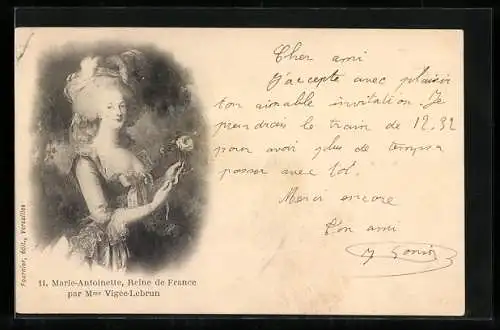 Cher ami
J'accepte avec plaisir
ton aimable invitation. Je
prendrais le train de 12.32
pour avoir plus de temps a
passer avec toi.
Merci encore
Ton ami
Fournier, édit., Versailles
11. Marie-Antoinette, Reine de France
par Mme Vigée-Lebrun